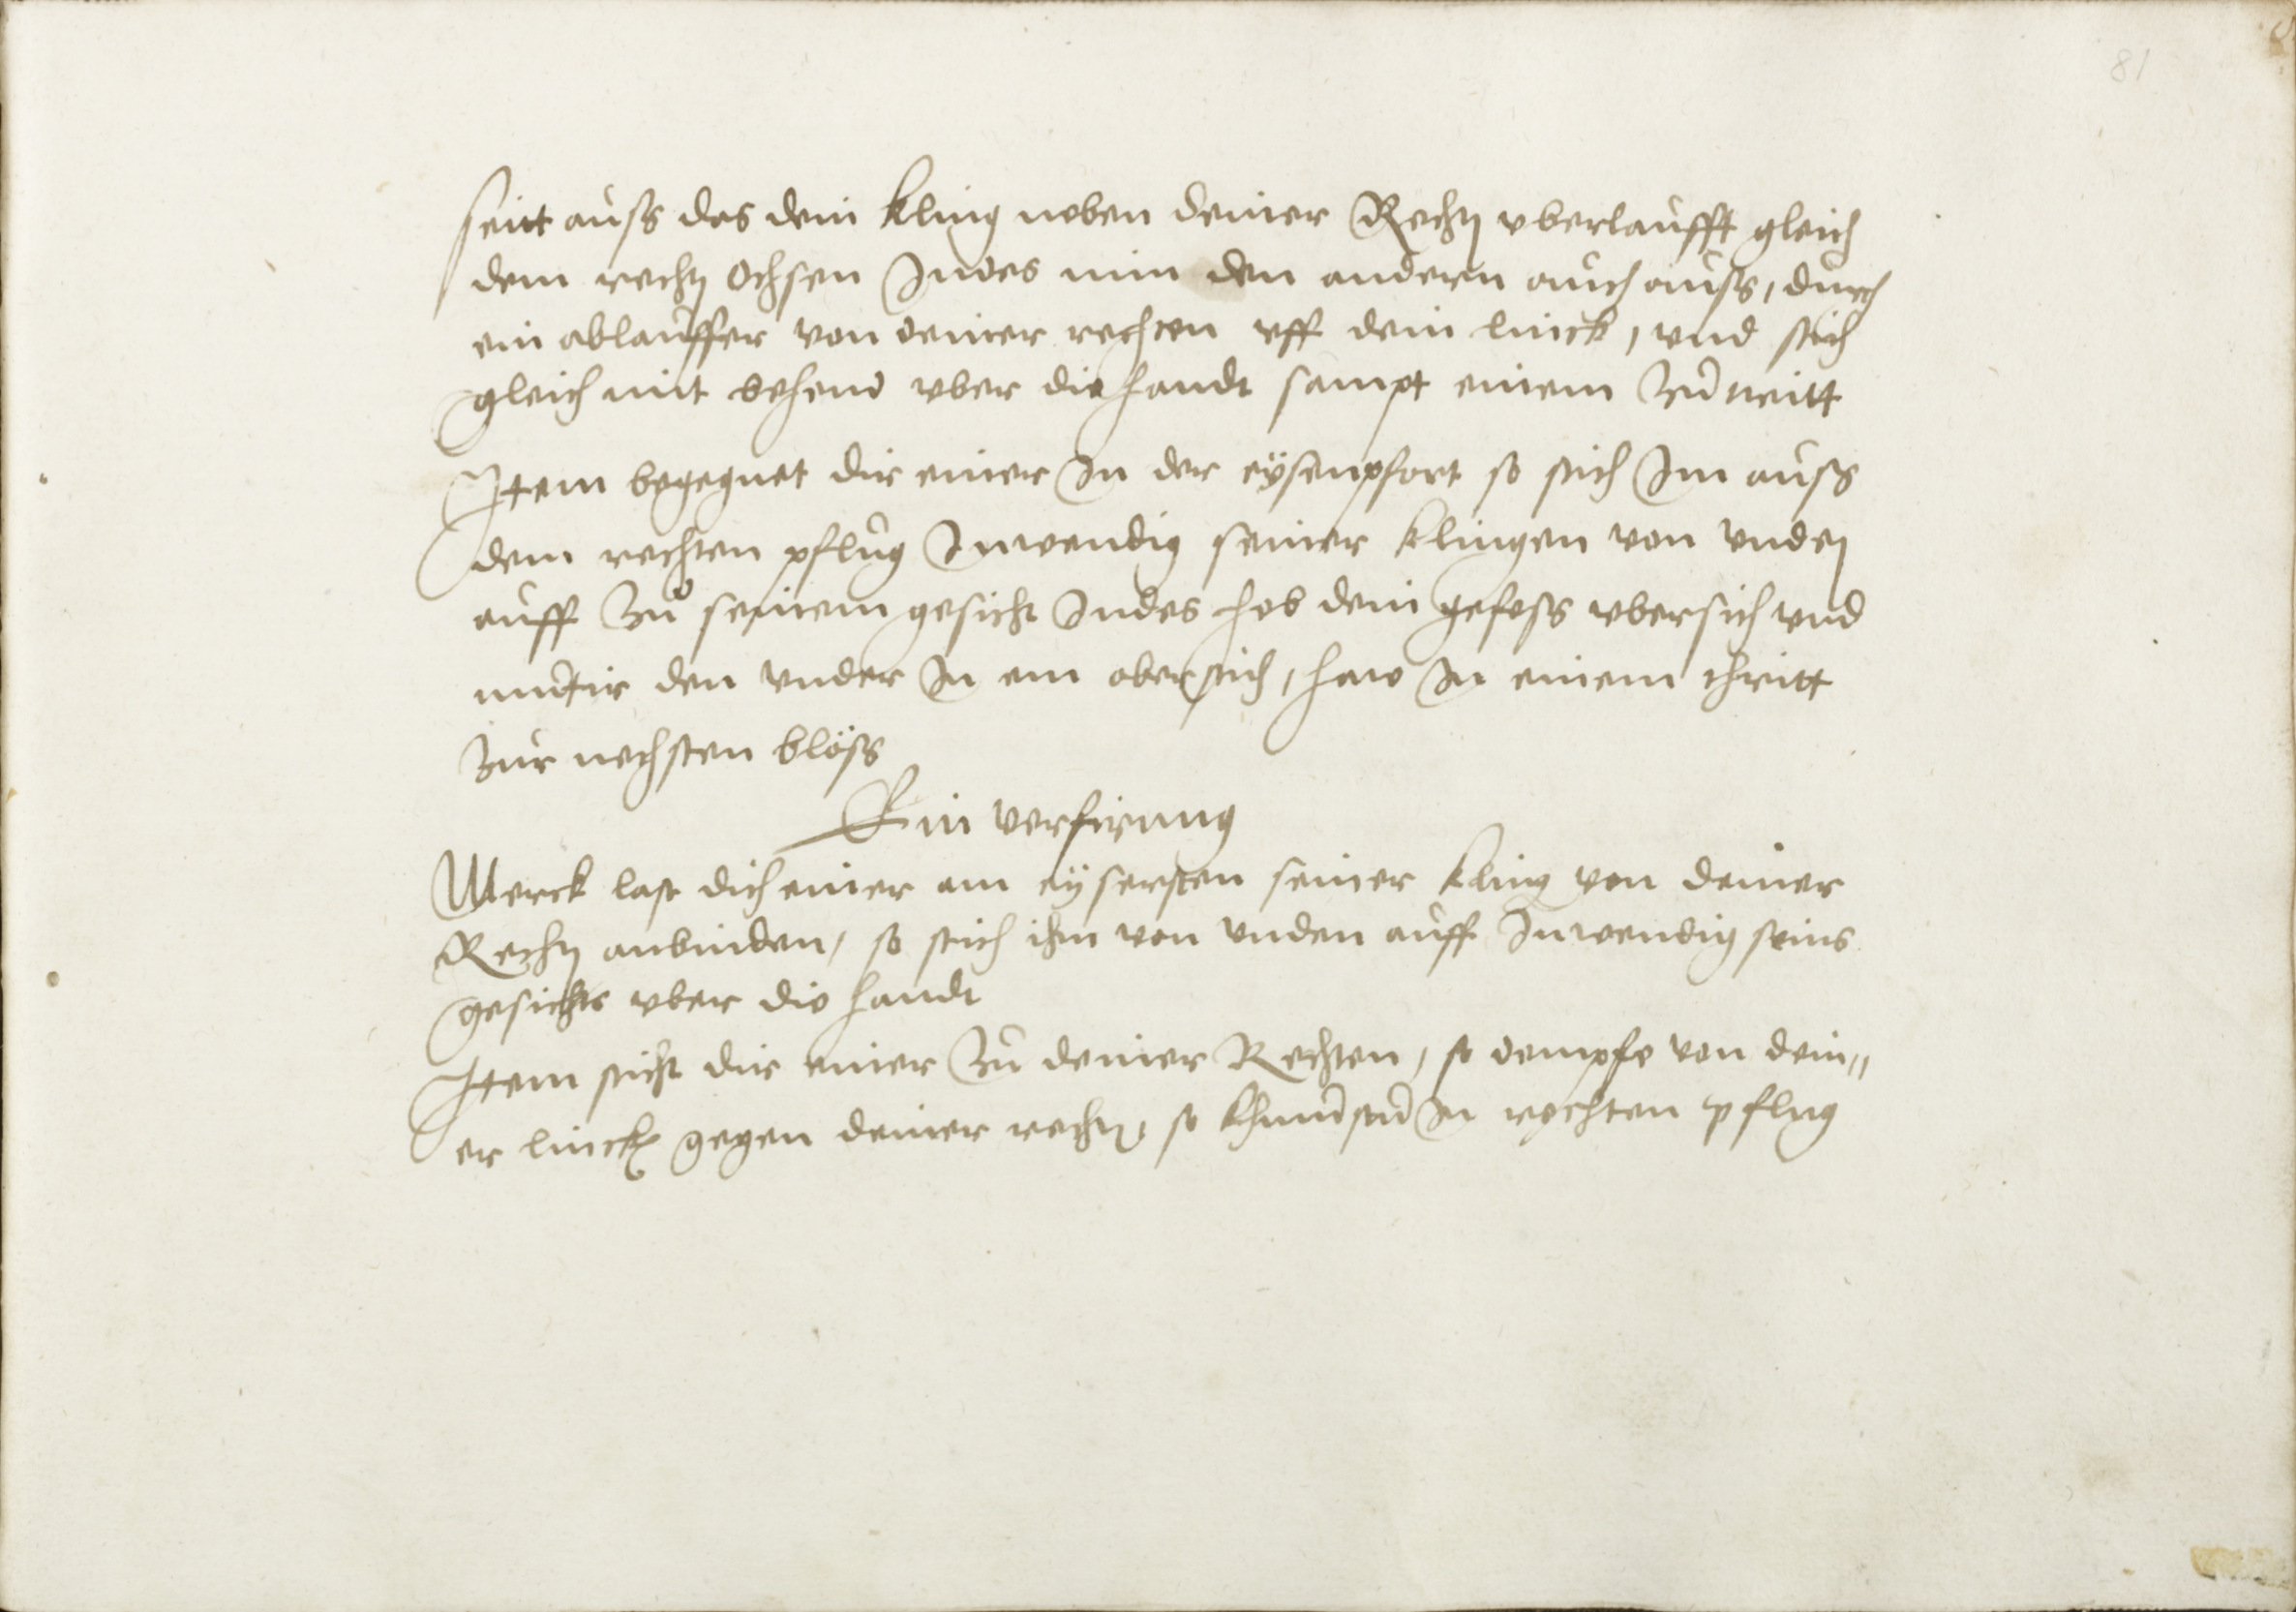 81
seitt auss das dein kling neben deiner Rechtn vberlaufft gleich
dem rechtn Ochsen Indes nim den andern auch auss, durch
ein ablauffer von deiner rechten vff dein linck, vnd stich
gleich mit behend vber die handt sampt einem Zutritt
Item begegnet dir einer In der eÿsenpfort so stich Im auss
dem rechten pflug Inwendig seiner klingen von vnden
auff Zu seinem gesicht Indes heb dein gefess vbersich vnd
mutir den vnder In ein oberstich, haw In einem schritt
Zur nechsten blöss
Ein verfirung
Merck last dich einer am eÿsersten seiner kling von deiner
Rechtn anbinden, so stich ihm von vnden auff Inwendig seins
gesichts vber die handt
Item sticht dir einer Zu deiner Rechten, so dempfe von dein„
er lincken gegen deiner rechtn, so khumstu In rechten pflug